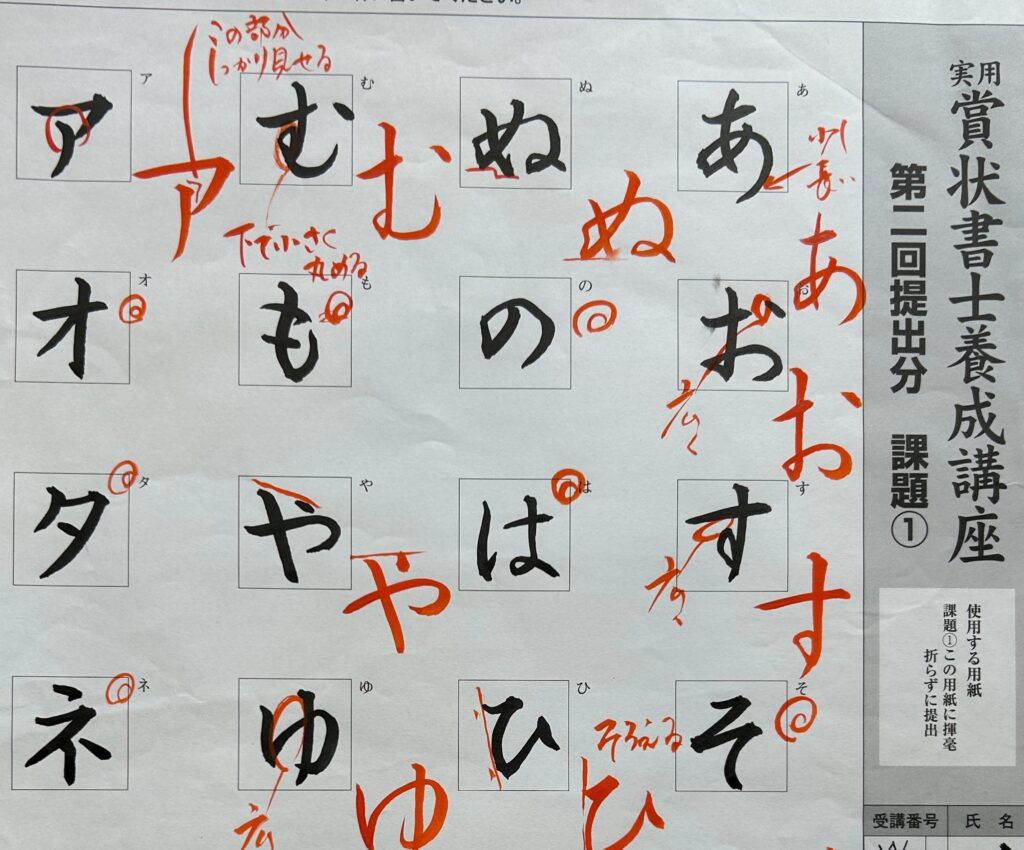 てください。
実用
賞状書士養成講座
第二回提出分 課題①
使用する用紙
課題①この用紙に揮毫
折らずに提出
受講番号
氏名
あ
あ
少し
長い
あ
お
広く
お
す
す
広く
す
そ
そ
ぬ
ぬ
ぬ
の
の
は
は
ひ
ひ
そろえる
ひ
む
む
む
下で小さく
丸める
も
も
や
や
や
ゆ
ゆ
広
ゆ
ア
ア
この部分
しっかり見せる
ア
オ
オ
タ
タ
ネ
ネ